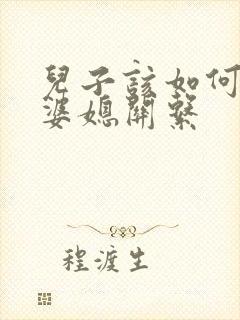 兒子該如何
婆媳關繫
程渡生